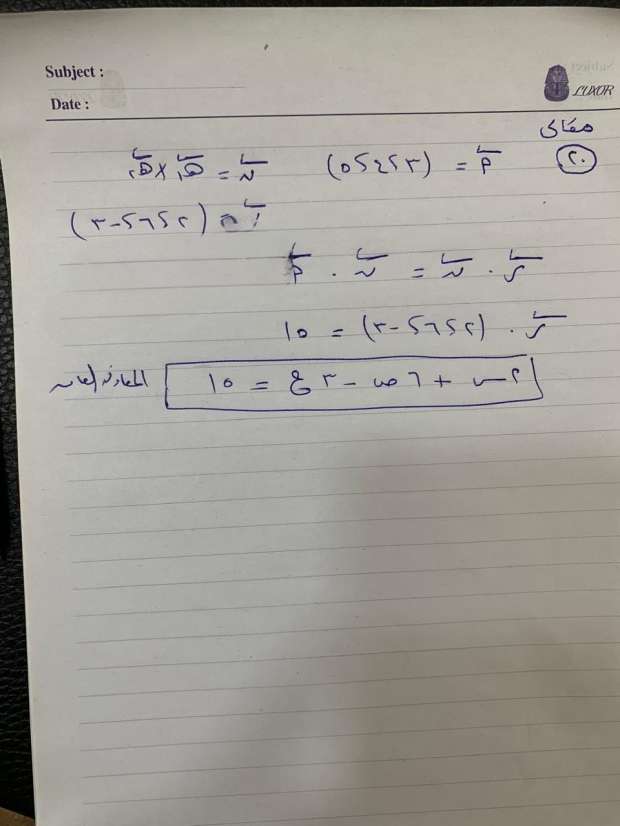 Subject :
Date :
LUXOR
مقالى
٢٠
م = (٣، ٤، ٥)
ن = هـ١ × هـ٢
ن = (٢، ٦، -٣)
ر . ن = ن . م
ر . (٢، ٦، -٣) = ١٥
٢س + ٦ص - ٣ع = ١٥
المعادلة العامة